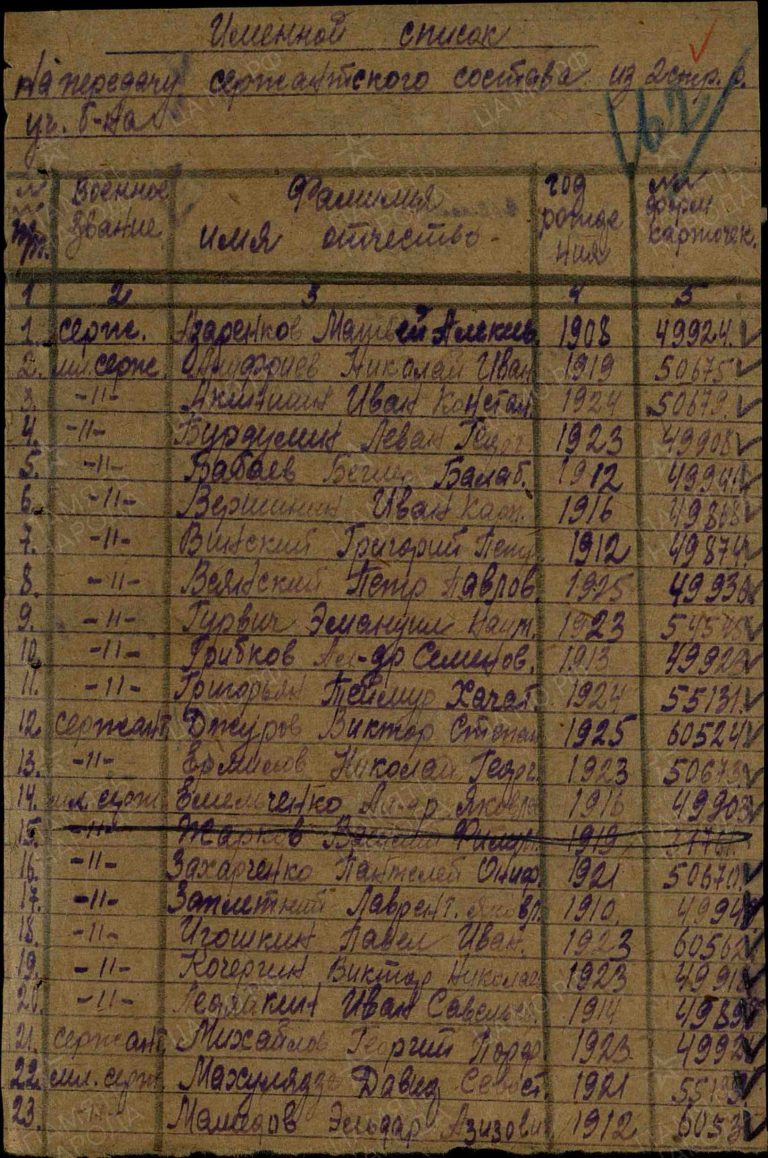 Именной список
на передачу сержантского состава из 2 стр. р.
уч. б-на
62
№№ п/п. Военное звание Фамилия имя отчество год рождения №№ форм карточек.
1 2 3 4 5
1. серж. Азаренков Матвей Алексеев. 1908 49924
2. мл. серж. Николай Иван 1919 50675
3. -"- Иван Констан. 1924 50679
4. -"- Леван Георг. 1923 49908
5. -"- Бабаев Балаб. 1912
6. -"- Вершинин Иван Карп. 1916 49868
7. -"- Винский Григорий Петр 1912 49874
8. -"- Петр Павлов 1925
9. -"- Гурвич Эмануил Наум. 1923
10. -"- Грибков Ал-др Семенов. 1913
11. -"- Григорьян Теймур Хачат 1924 55131
12. сержант Джуров Виктор Степан 1925 60524
13. -"- Николай Георг. 1923 50673
14. мл. серж Емельченко Ал-др Яковл 1916 49903
15. -"- Жарков Василий 1919
16. -"- Захарченко Пантелей Ониф. 1921 50670
17. -"- Заплетний Лаврент. Яковл. 1910
18. -"- Игошкин Павел Иван. 1923 60562
19. -"- Кочергин Виктор Николае 1923
20. -"- Иван Савельев. 1914
21. сержант Михайлов Георгий Порф 1923
22. мл. серж Давид Севаст. 1921
23. -"- Мамедов Эльдар Азизови 1912